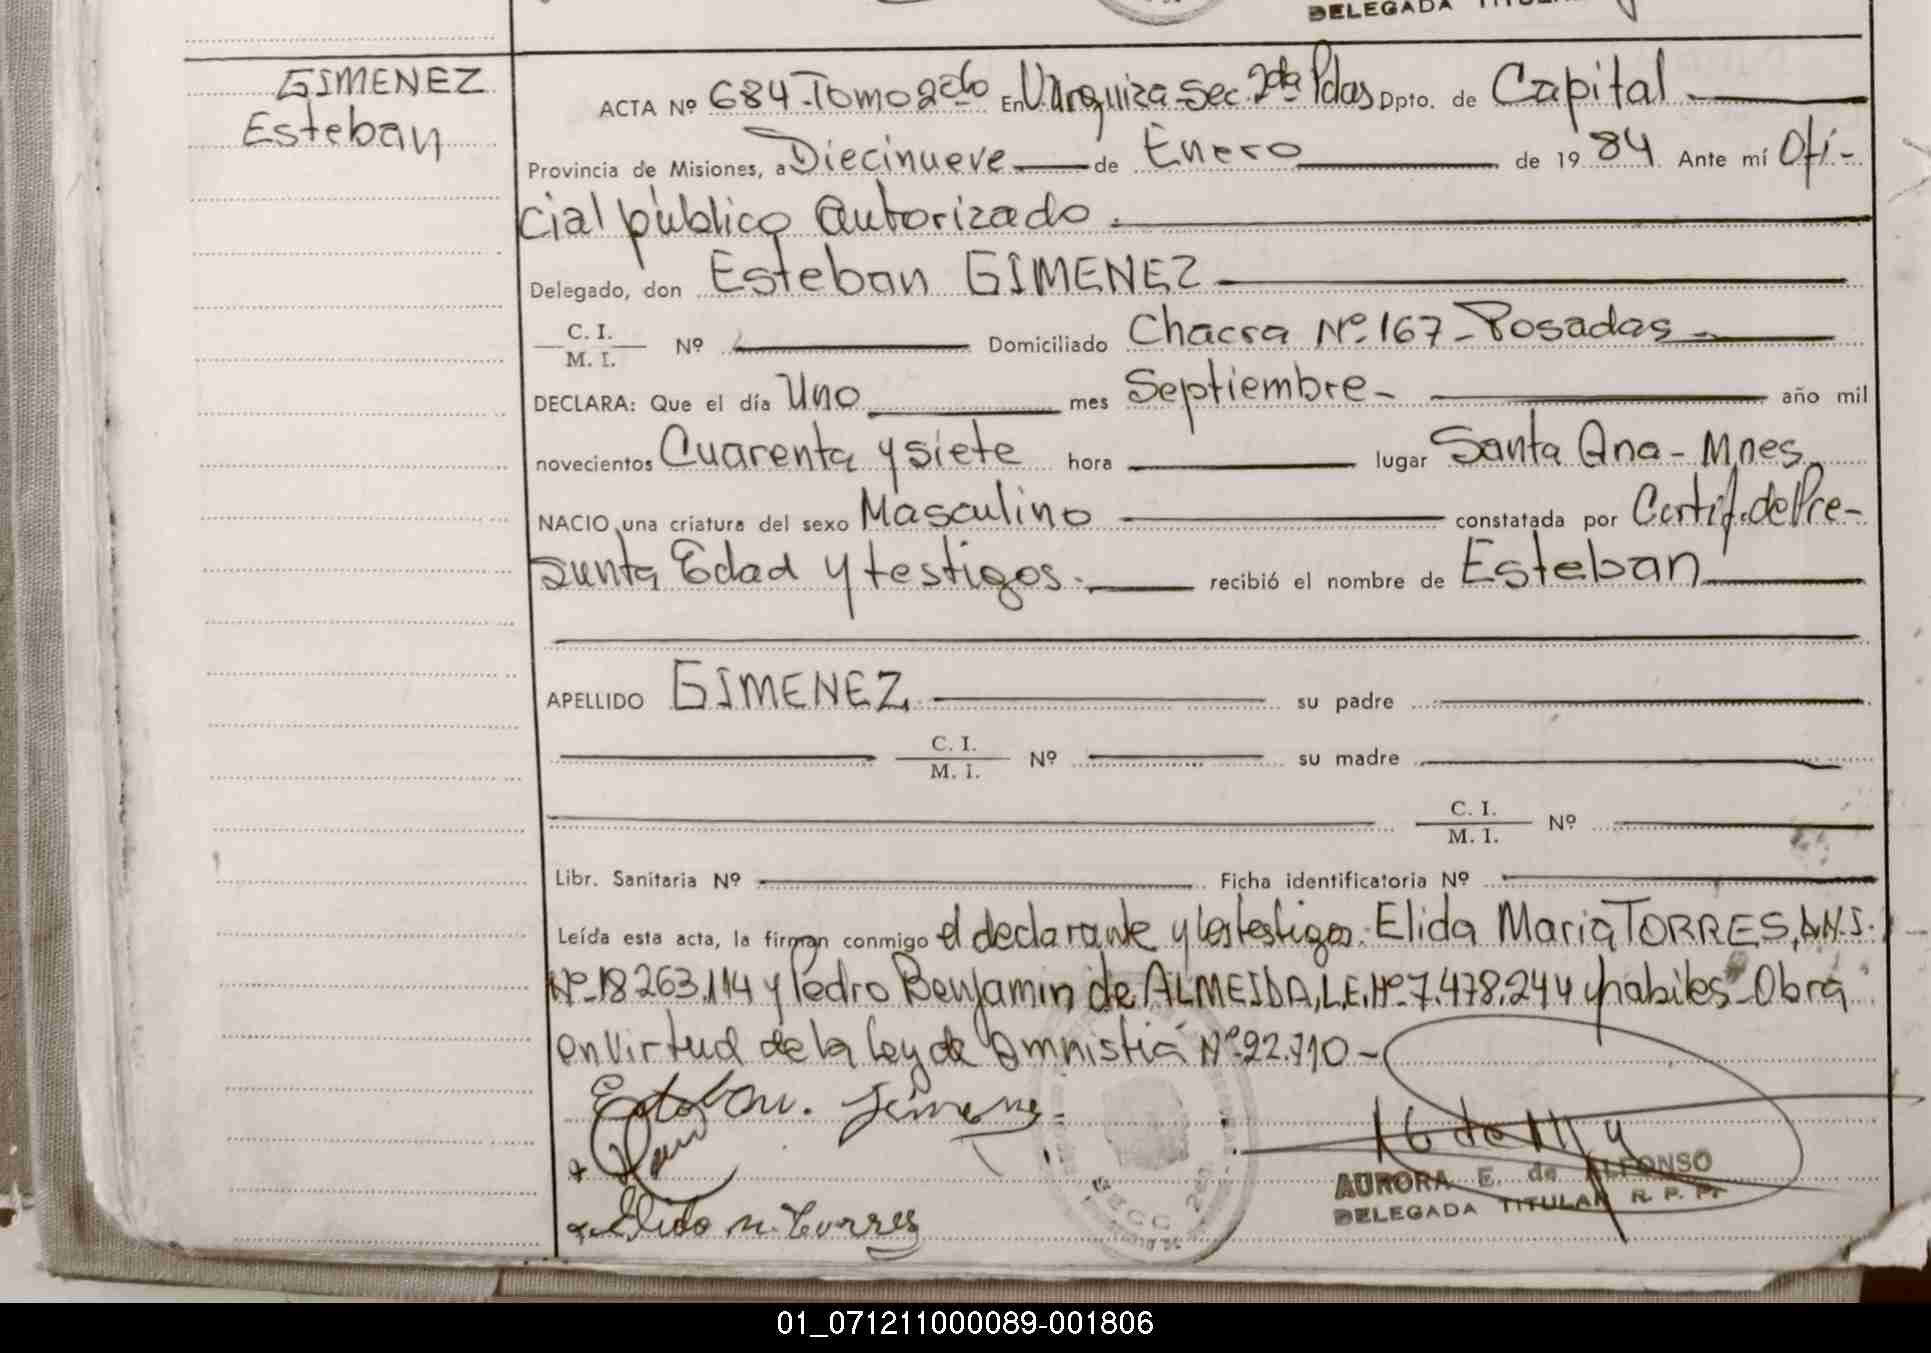 DELEGADA TITULAR
GIMENEZ
Esteban
ACTA Nº 684-Tomo 2do En V. Urquiza-Sec. 2da Pdas Dpto. de Capital
Provincia de Misiones, a Diecinueve de Enero de 19 84 Ante mí Ofi-
cial público autorizado.
Delegado, don Esteban GIMENEZ
C. I.
M. I. Nº Domiciliado Chacra Nº 167-Posadas
DECLARA: Que el día Uno mes Septiembre- año mil
novecientos Cuarenta y siete hora lugar Santa Ana-Mnes.
NACIO una criatura del sexo Masculino constatada por Certif. de Pre-
sunta Edad y testigos. recibió el nombre de Esteban
APELLIDO GIMENEZ su padre
C. I.
M. I. Nº su madre
C. I.
M. I. Nº
Libr. Sanitaria Nº Ficha identificatoria Nº
Leída esta acta, la firman conmigo el declarante y los testigos: Elida Maria TORRES, D.N.I.
Nº-18263.114 y Pedro Benjamin de ALMEIDA, L.E. Nº-7.478.244 y habiles-Obra
en virtud de la Ley de Amnistia Nº 22.710-
Esteban. Jimenez
Elida M. Torres
AURORA E. de ALFONSO
DELEGADA TITULAR R. P. P.
SECC. 2da
01_071211000089-001806